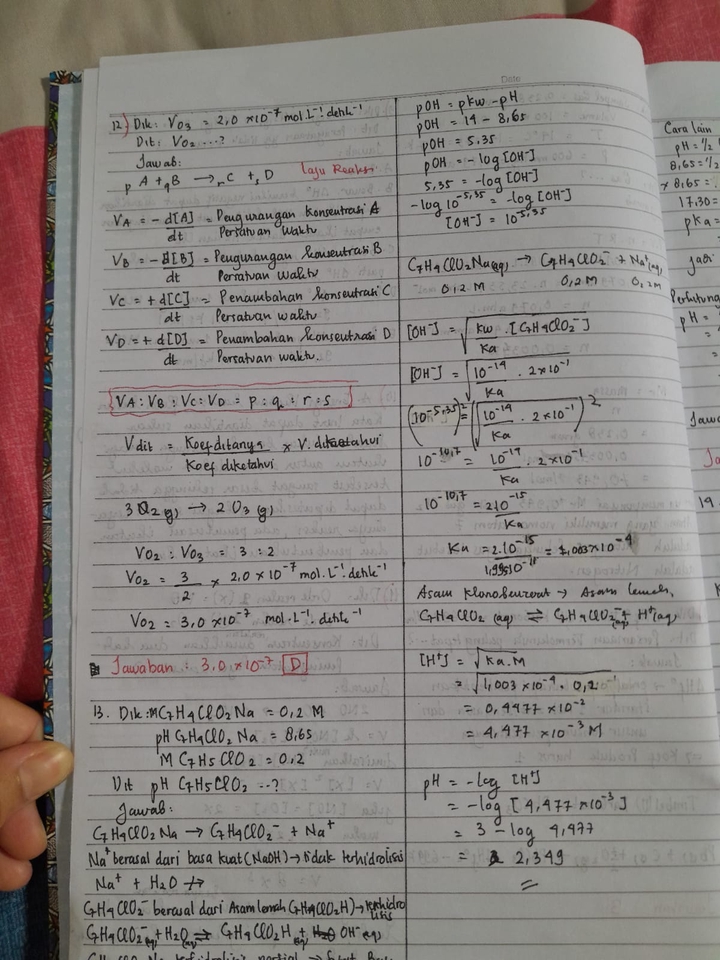 Date
12) Dik: VO3 = 2,0 × 10⁻⁷ mol.L⁻¹.detik⁻¹
Dit: VO2 ...?
Jawab:
pA + qB → rC + sD Laju Reaksi
VA = -d[A]/dt = Pengurangan Konsentrasi A / Persatuan Waktu
VB = -d[B]/dt = Pengurangan konsentrasi B / Persatuan Waktu
VC = +d[C]/dt = Penambahan konsentrasi C / Persatuan waktu
VD = +d[D]/dt = Penambahan konsentrasi D / Persatuan waktu.
VA : VB : VC : VD = p : q : r : s
Vdit = Koef ditanya / Koef diketahui × V. diketahui
3O2(g) → 2O3(g)
VO2 : VO3 = 3 : 2
VO2 = 3/2 × 2,0 × 10⁻⁷ mol.L⁻¹.detik⁻¹
VO2 = 3,0 × 10⁻⁷ mol.L⁻¹.detik⁻¹
Jawaban : 3,0 × 10⁻⁷ D
13. Dik: M C7H4ClO2Na = 0,2 M
pH C7H4ClO2Na = 8,65
M C7H5ClO2 = 0,2
Dit pH C7H5ClO2 ..?
Jawab:
C7H4ClO2Na → C7H4ClO2⁻ + Na⁺
Na⁺ berasal dari basa kuat (NaOH) → tidak terhidrolisis
Na⁺ + H2O ↛
C7H4ClO2⁻ berasal dari Asam lemah (C7H4ClO2H) → terhidrolisis
C7H4ClO2⁻(aq) + H2O ⇌ C7H4ClO2H(aq) + OH⁻(aq)
pOH = pKw - pH
pOH = 14 - 8,65
pOH = 5,35
pOH = -log [OH⁻]
5,35 = -log [OH⁻]
-log 10⁻⁵,³⁵ = -log [OH⁻]
[OH⁻] = 10⁻⁵,³⁵
C7H4ClO2Na(aq) → C7H4ClO2⁻ + Na⁺(aq)
0,2 M 0,2 M 0,2 M
[OH⁻] = √(Kw/Ka . [C7H4ClO2⁻])
[OH⁻] = √(10⁻¹⁴/Ka . 2×10⁻¹)
(10⁻⁵,³⁵)² = (√(10⁻¹⁴/Ka . 2×10⁻¹))²
10⁻¹⁰,⁷ = 10⁻¹⁴/Ka . 2×10⁻¹
10⁻¹⁰,⁷ = 2.10⁻¹⁵/Ka
Ka = 2.10⁻¹⁵/1,995.10⁻¹¹ = 1,003×10⁻⁴
Asam Klorobenzoat → Asam lemah,
C7H4ClO2(aq) ⇌ C7H4ClO2⁻(aq) + H⁺(aq)
[H⁺] = √Ka.M
= √1,003 × 10⁻⁴ . 0,2
= 0,4477 × 10⁻²
= 4,477 × 10⁻³ M
pH = -log [H⁺]
= -log [4,477 × 10⁻³]
= 3 - log 4,477
= 2,349
Cara lain
pH = ½
8,65 = ½
× 8,65 =
17,30 =
pKa =
Jadi
pH =
Jawa
19